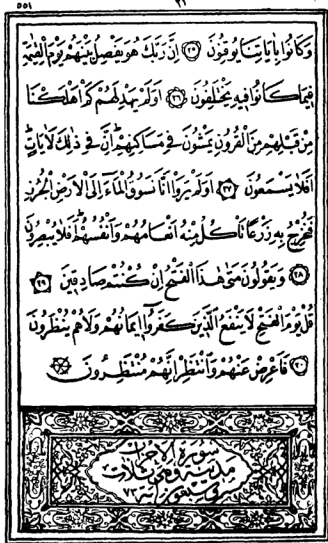 ٥٥١ ٢١
وَكَانُوا بِاٰيَاتِنَا يُوقِنُونَ ٢٥ اِنَّ رَبَّكَ هُوَ يَفْصِلُ بَيْنَهُمْ يَوْمَ الْقِيٰمَةِ
فِيمَا كَانُوا فِيهِ يَخْتَلِفُونَ ٢٦ اَوَلَمْ يَهْدِ لَهُمْ كَمْ اَهْلَكْنَا
مِنْ قَبْلِهِمْ مِنَ الْقُرُونِ يَمْشُونَ فِي مَسَاكِنِهِمْ اِنَّ فِي ذٰلِكَ لَاٰيَاتٍ
اَفَلَا يَسْمَعُونَ ٢٧ اَوَلَمْ يَرَوْا اَنَّا نَسُوقُ الْمَاءَ اِلَى الْاَرْضِ الْجُرُزِ
فَنُخْرِجُ بِهِ زَرْعًا تَأْكُلُ مِنْهُ اَنْعَامُهُمْ وَاَنْفُسُهُمْ اَفَلَا يُبْصِرُونَ
٢٨ وَيَقُولُونَ مَتٰى هٰذَا الْفَتْحُ اِنْ كُنْتُمْ صَادِقِينَ ٢٩
قُلْ يَوْمَ الْفَتْحِ لَا يَنْفَعُ الَّذِينَ كَفَرُوا اِيمَانُهُمْ وَلَا هُمْ يُنْظَرُونَ
٣٠ فَاَعْرِضْ عَنْهُمْ وَانْتَظِرْ اِنَّهُمْ مُنْتَظِرُونَ
سورة الاحزاب
مدنية وهى ثلاث
وسبعون اية ٧٣